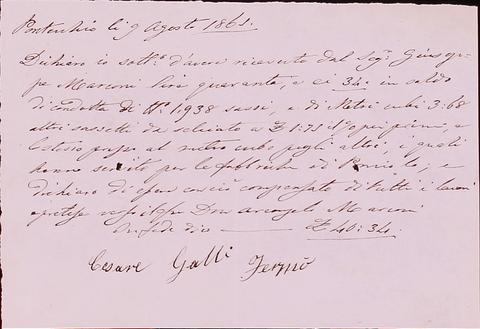 Pontecchio li 9 Agosto 1861.
Dichiaro io sott.º d'avere ricevuto dal Sig.r Giusep-
pe Marconi lire quaranta, e c.i 34. in saldo
di condotta di N.º 1,938 sassi, e di Metri cubi 3:68
altri sassetti da selciato a £ 1:75 il % pei primi, e
al metro cubo pegli altri, i quali
hanno servito per le fabbriche di; e
dichiaro di essere così compensato di tutti i lavori
Don Arcangelo Marconi
In fede dico — £ 40:34.
Cesare Galli Fermò